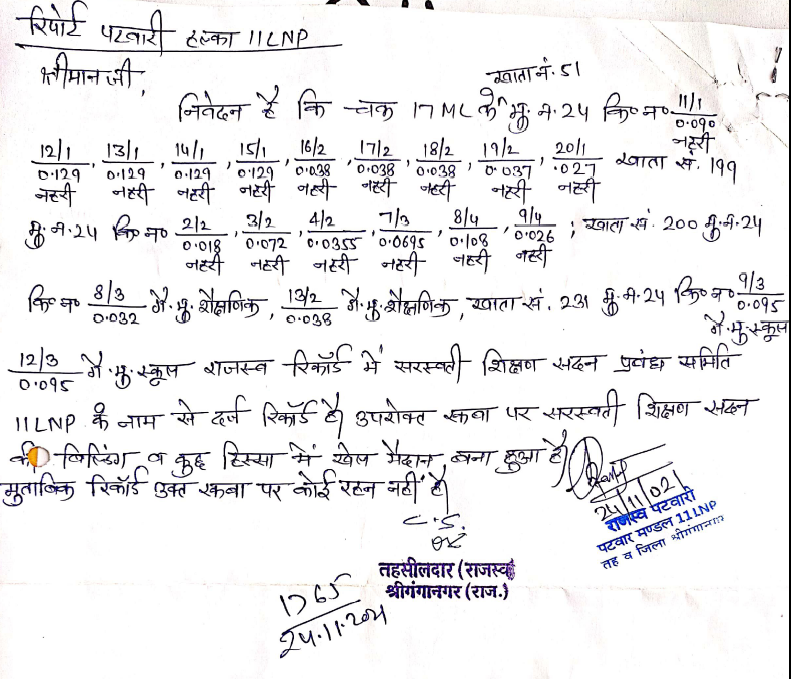 रिपोर्ट पटवारी हल्का 11LNP
श्रीमानजी,
खाता नं. 51
निवेदन है कि चक 17 ML के मु.न. 24 कि०न० 11/1
0.090
नहरी
12/1, 13/1, 14/1, 15/1, 16/2, 17/2, 18/2, 19/2, 20/1 खाता सं. 199
0.129 0.129 0.129 0.129 0.038 0.038 0.038 0.037 .027
नहरी नहरी नहरी नहरी नहरी नहरी नहरी नहरी नहरी
मु.न. 24 कि०न० 2/2, 3/2, 4/2, 7/3, 8/4, 9/4; खाता सं. 200 मु.न. 24
0.018 0.072 0.0355 0.0695 0.108 0.026
नहरी नहरी नहरी नहरी नहरी नहरी
कि०न० 8/3 गै.मु. शैक्षणिक, 13/2 गै.मु. शैक्षणिक, खाता सं. 231 मु.न. 24 कि०न० 9/3
0.032 0.038 0.095
गै.मु. स्कूल
12/3 गै.मु. स्कूल राजस्व रिकॉर्ड में सरस्वती शिक्षण सदन प्रबंध समिति
0.095
11LNP के नाम से दर्ज रिकॉर्ड है। उपरोक्त रकबा पर सरस्वती शिक्षण सदन
की बिल्डिंग व कुछ हिस्सा में खेल मैदान बना हुआ है।
मुताबिक रिकॉर्ड उक्त रकबा पर कोई रहन नहीं है।
24/11/021
राजस्व पटवारी
पटवार मण्डल 11LNP
तह व जिला श्रीगंगानगर
C.S.
तहसीलदार (राजस्व)
श्रीगंगानगर (राज.)
1765
24.11.2021